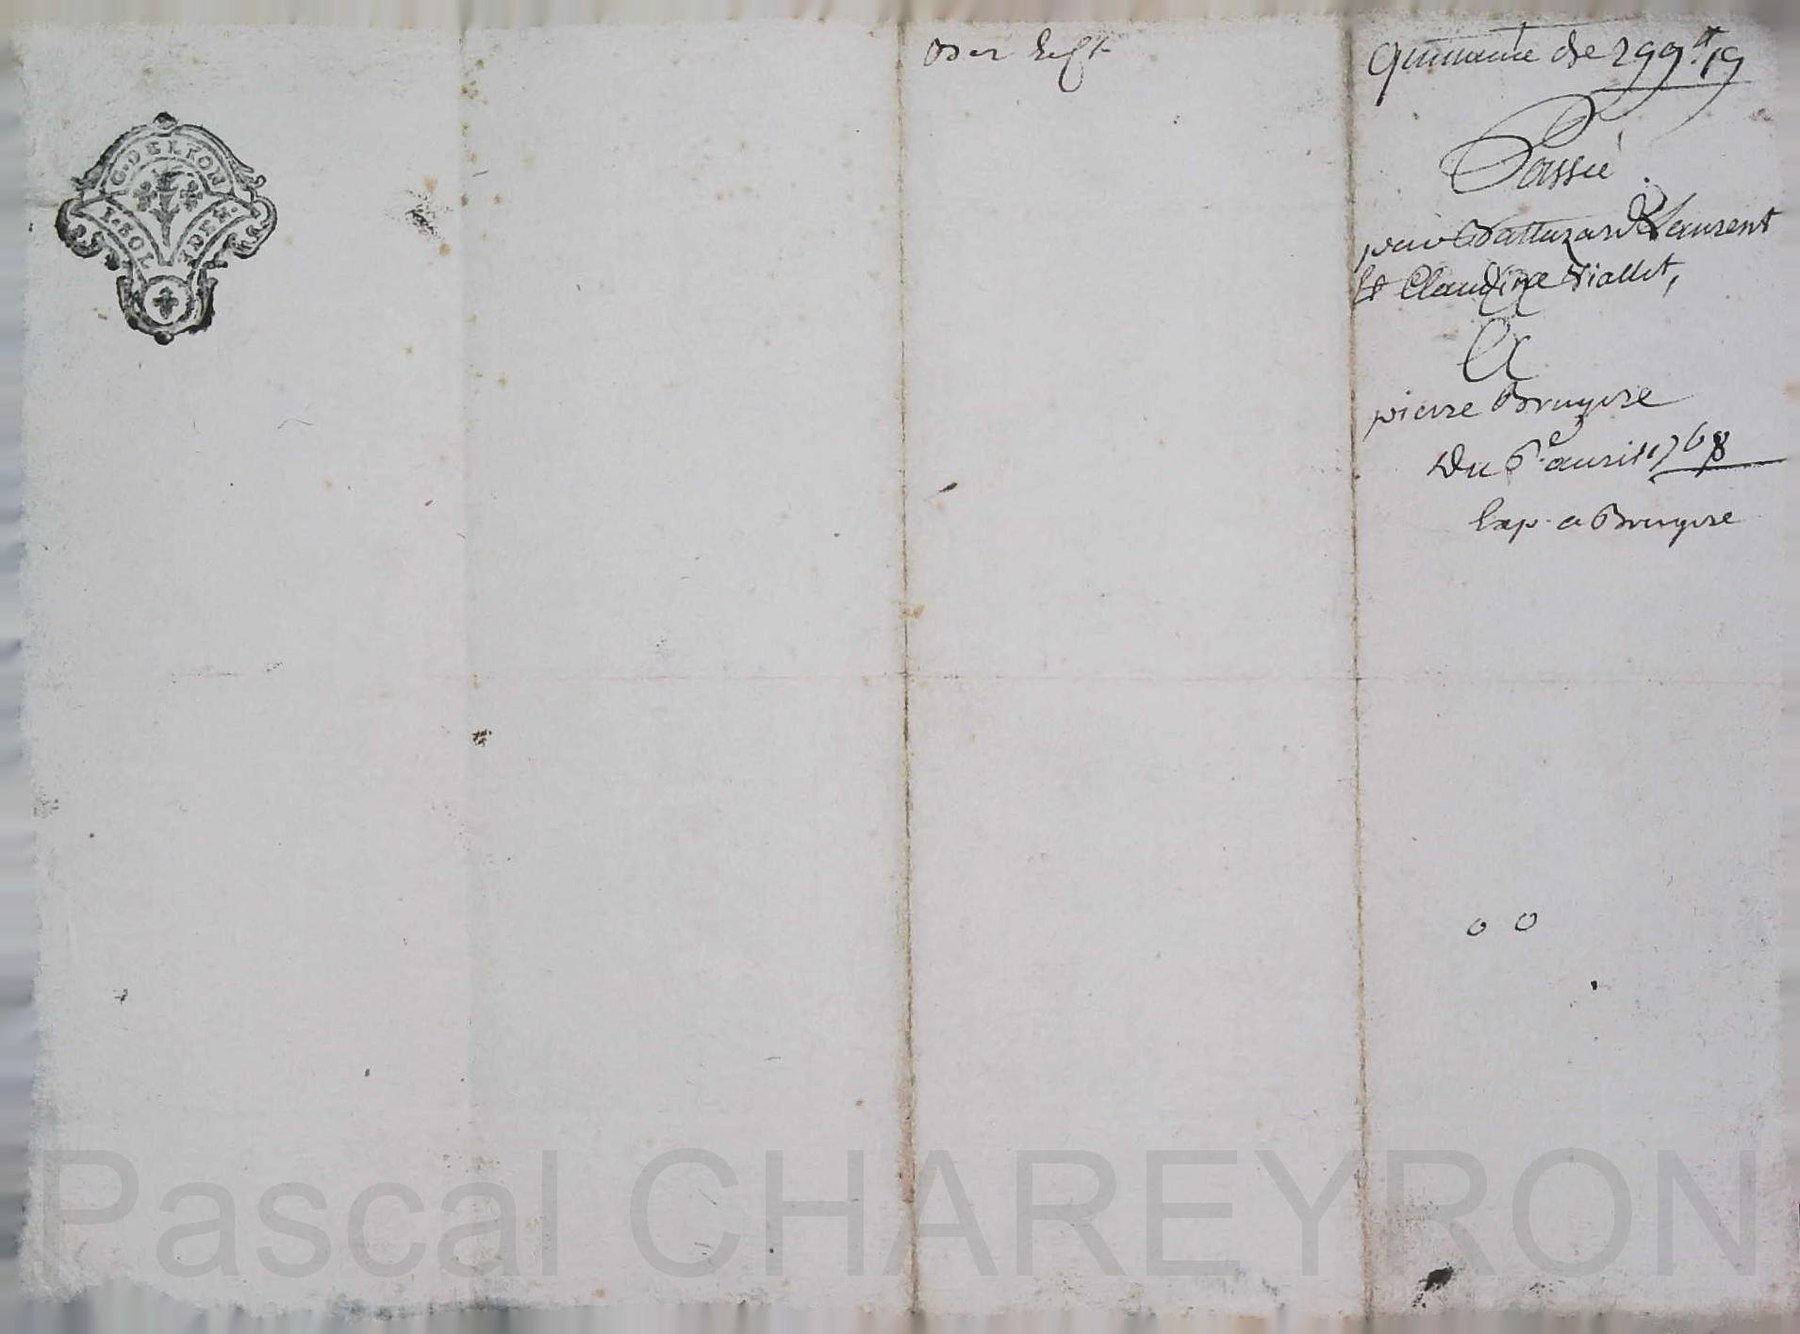 G. DE LYON
1. SOL
DEN.
Quittance de 299 ₶ 19
Passée
par Battazard Laurent
Et Claudine Viallet,
A
pierre Bruyere
Du 6e. auril 1768
Exp. a Bruyere
o o
Pascal CHAREYRON